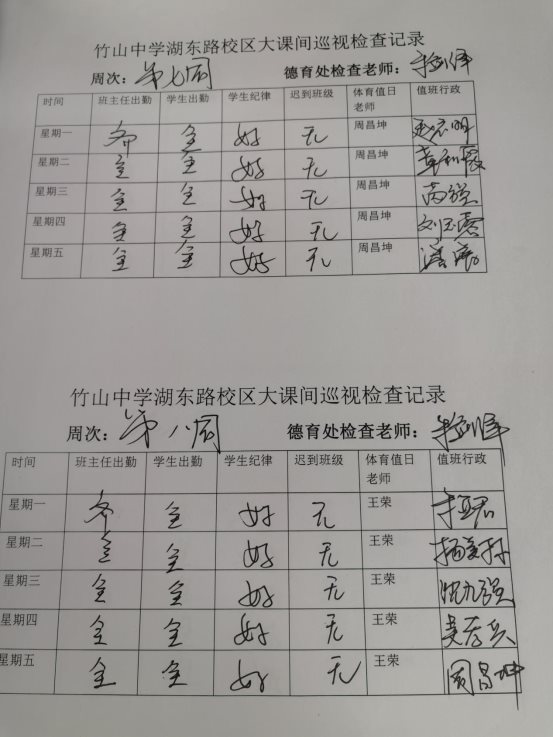 竹山中学湖东路校区大课间巡视检查记录
周次：第七周 德育处检查老师：
时间 班主任出勤 学生出勤 学生纪律 迟到班级 体育值日老师 值班行政
星期一 全 好 无 周昌坤
星期二 全 全 好 无 周昌坤
星期三 全 全 好 无 周昌坤 高强
星期四 全 全 好 无 周昌坤
星期五 全 全 好 无 周昌坤
竹山中学湖东路校区大课间巡视检查记录
周次：第八周 德育处检查老师：
时间 班主任出勤 学生出勤 学生纪律 迟到班级 体育值日老师 值班行政
星期一 全 好 无 王荣
星期二 全 全 好 无 王荣
星期三 全 全 好 无 王荣
星期四 全 全 好 无 王荣
星期五 全 全 好 无 王荣 周昌坤